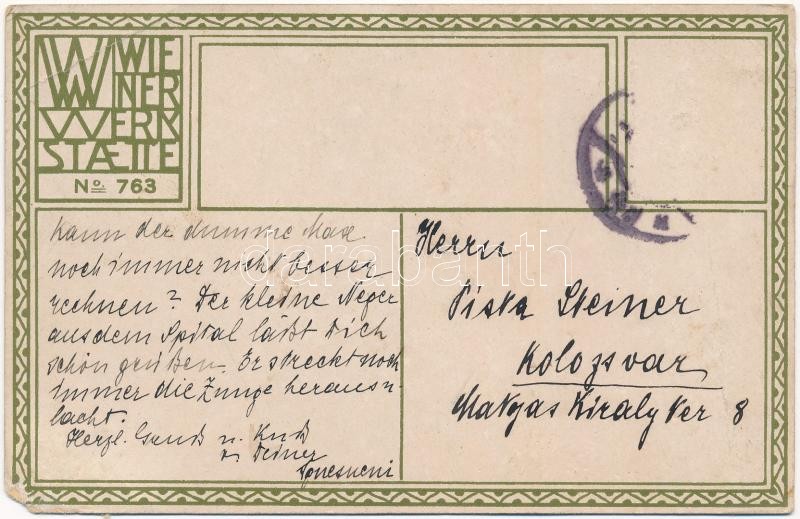 WW WIE
NER
WERK
STÆTTE
No. 763
kann der dumme Max
noch immer nicht besser
rechnen? Der kleine Neger
aus dem Spital läßt Dich
schön grüßen. Er streckt noch
immer die Zunge heraus u
lacht.
Herzl. Gruß u. Kuß
v Deiner
Herrn
Pista Steiner
Kolozsvar
Matyas Kiraly ter 8
darabanth